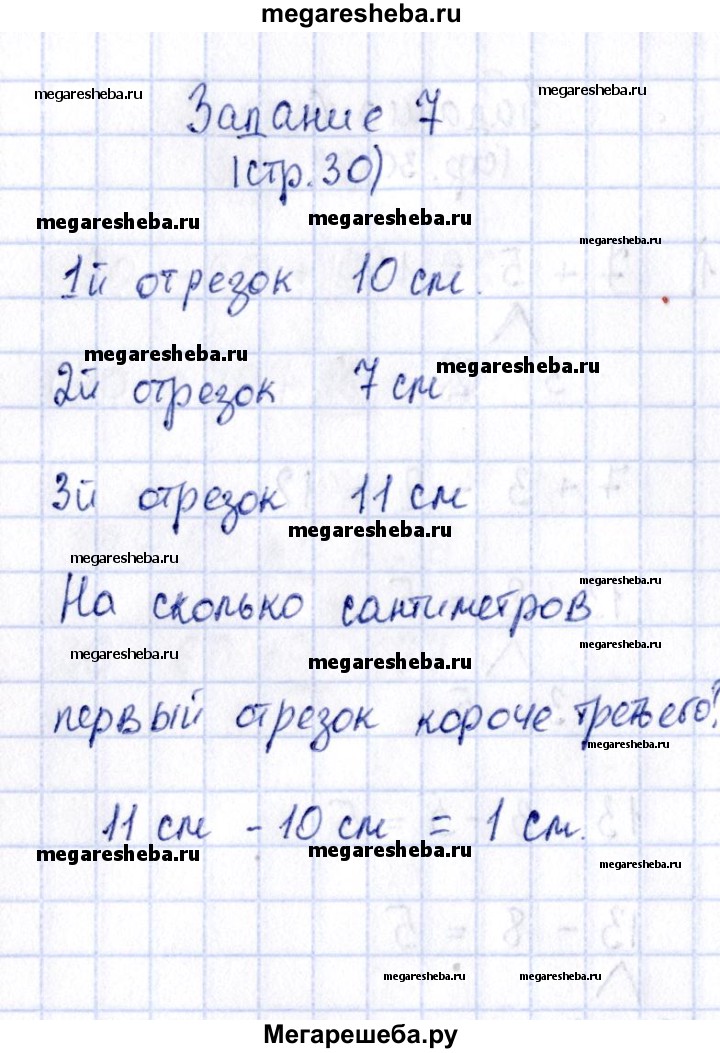 megaresheba.ru
megaresheba.ru megaresheba.ru
Задание 7
(стр. 30)
megaresheba.ru megaresheba.ru
megaresheba.ru
1й отрезок 10 см.
megaresheba.ru megaresheba.ru
2й отрезок 7 см
3й отрезок 11 см
megaresheba.ru
megaresheba.ru
megaresheba.ru
На сколько сантиметров
megaresheba.ru megaresheba.ru
первый отрезок короче третьего?
megaresheba.ru
11 см - 10 см = 1 см.
megaresheba.ru megaresheba.ru megaresheba.ru
13 - 8 = 5
megaresheba.ru megaresheba.ru
Мегарешеба.ру